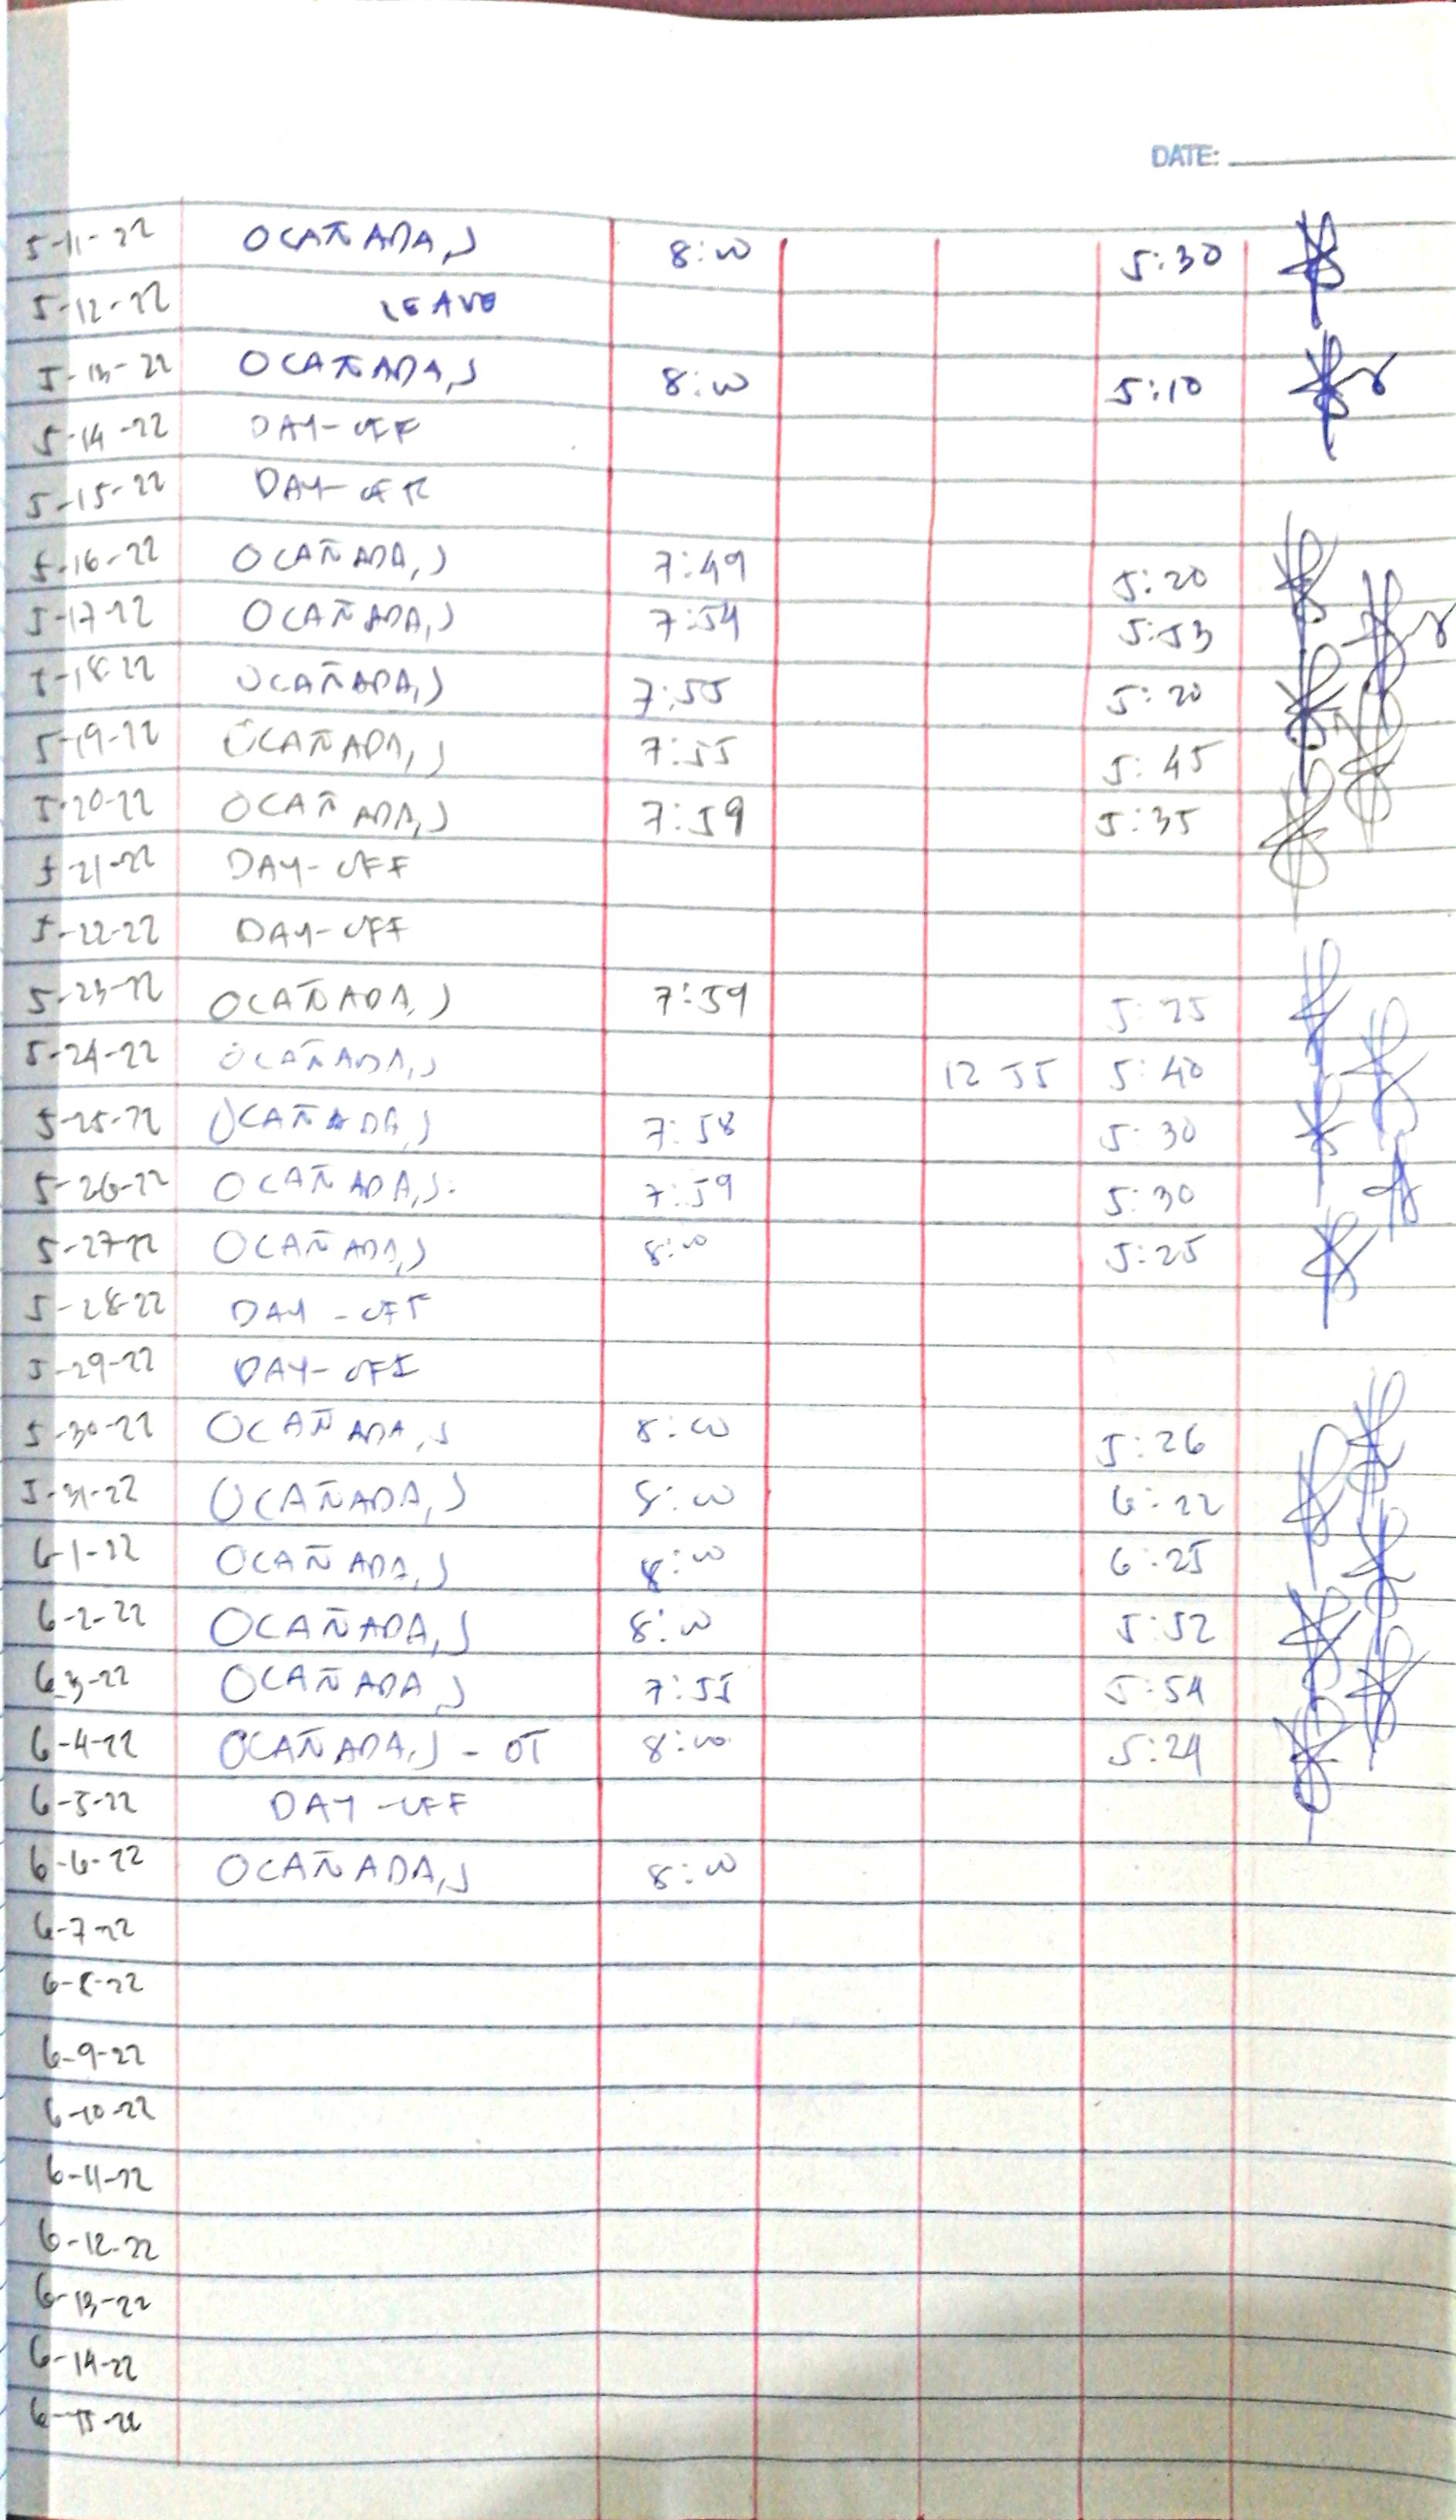 DATE:
5-11-22 OCAÑADA, J 8:00 5:30
5-12-22 LEAVE
5-13-22 OCAÑADA, J 8:00 5:10
5-14-22 DAY-OFF
5-15-22 DAY-OFF
5-16-22 OCAÑADA, J 7:49 5:20
5-17-22 OCAÑADA, J 7:54 5:53
5-18-22 OCAÑADA, J 7:55 5:20
5-19-22 OCAÑADA, J 7:55 5:45
5-20-22 OCAÑADA, J 7:59 5:35
5-21-22 DAY-OFF
5-22-22 DAY-OFF
5-23-22 OCAÑADA, J 7:59 5:25
5-24-22 OCAÑADA, J 12 55 5:40
5-25-22 OCAÑADA, J 7:58 5:30
5-26-22 OCAÑADA, J. 7:59 5:30
5-27-22 OCAÑADA, J 8:00 5:25
5-28-22 DAY-OFF
5-29-22 DAY-OFF
5-30-22 OCAÑADA, J 8:00 5:26
5-31-22 OCAÑADA, J 8:00 6:22
6-1-22 OCAÑADA, J 8:00 6:25
6-2-22 OCAÑADA, J 8:00 5:52
6-3-22 OCAÑADA, J 7:55 5:54
6-4-22 OCAÑADA, J - OT 8:00 5:24
6-5-22 DAY-OFF
6-6-22 OCAÑADA, J 8:00
6-7-22
6-8-22
6-9-22
6-10-22
6-11-22
6-12-22
6-13-22
6-14-22
6-15-22